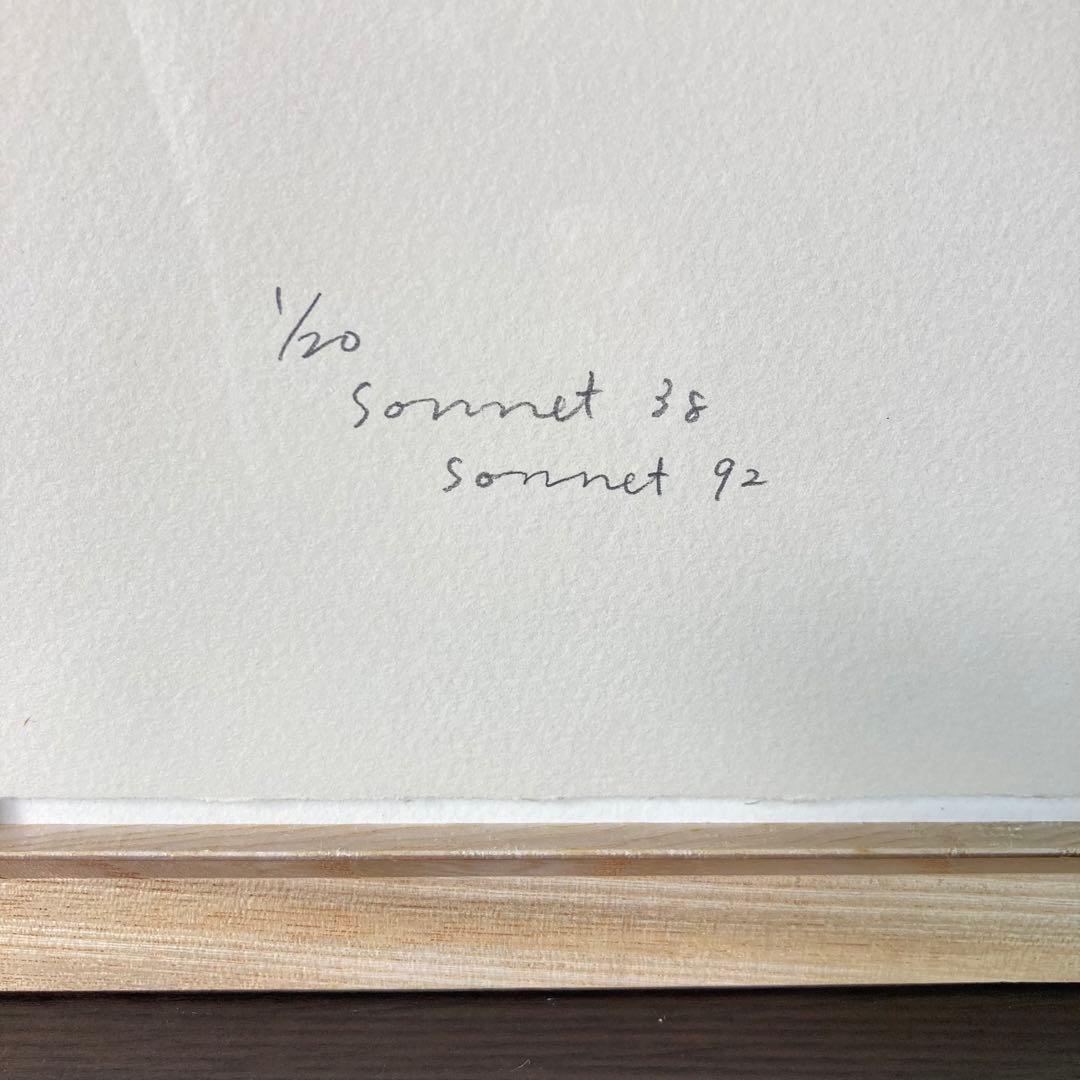 1/20
Sonnet 38
Sonnet 92